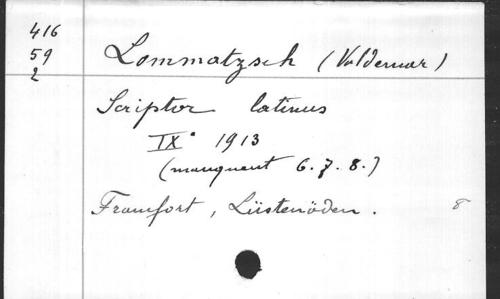 416
59
2
Lommatzsch (Valdemar)
Scriptor latinus
IX° 1913
(manquent 6. 7. 8.)
Francfort, Lüstenöden. 8